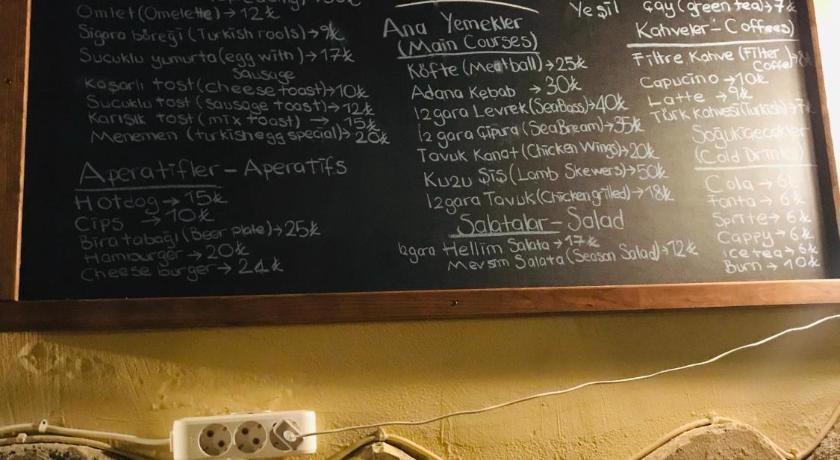 Omlet (Omelette) → 12₺
Sigara böreği (Turkish rools) → 9₺
Sucuklu yumurta (egg with sausage) → 17₺
Kaşarlı tost (cheese toast) → 10₺
Sucuklu tost (sausage toast) → 12₺
Karışık tost (mix toast) → 15₺
Menemen (turkish egg special) → 20₺
Aperatifler - Aperatifs
Hotdog → 15₺
Cips → 10₺
Bira tabağı (Beer plate) → 25₺
Hamburger → 20₺
Cheese burger → 24₺
Ana Yemekler
(Main Courses)
Köfte (Meatball) → 25₺
Adana Kebap → 30₺
Izgara Levrek (Sea Bass) → 40₺
Izgara Çipura (Sea Bream) → 35₺
Tavuk Kanat (Chicken Wings) → 20₺
Kuzu Şiş (Lamb Skewers) → 50₺
Izgara Tavuk (Chicken grilled) → 18₺
Salatalar - Salad
Izgara Hellim Salata → 17₺
Mevsim Salata (Season Salad) → 12₺
Yeşil Çay (green tea) → 7₺
Kahveler - Coffees)
Filtre Kahve (Filter Coffe)
Capucino → 10₺
Latte → 9₺
Türk Kahvesi (Turkish) → 7₺
Soğuk içecekler
(Cold Drinks)
Cola → 6₺
Fanta → 6₺
Sprite → 6₺
Cappy → 6₺
ice tea → 6₺
Burn → 10₺